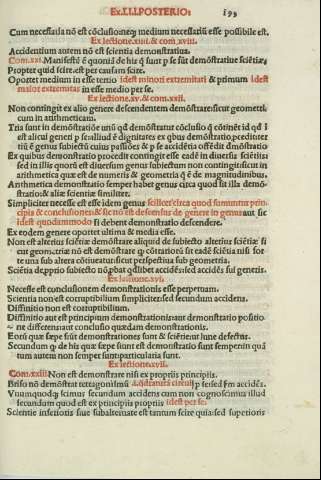 Ex.I.LI.POSTERIO: 199
Cum necessaria nō est cōclusio neq; medium necessariū esse possibile est.
Ex lectione.xiiii.& com.xviii.
Accidentium autem nō est scientia demonstratiua.
Com.xxi. Manifestū ē quoniā de his q̄ sunt p se sūt demōstratiuæ sciētiæ,
Propter quid scire.est per causam scire.
Oportet medium in esse tertio idest minori extremitati & primum idest
maiori extremitati in esse medio per se.
Ex lectione.xv.& com.xxii.
Non contingit ex alio genere descendentem demōstrare:sicut geometri.
cum in arithmeticam.
Tria sunt in demonstratiōe unū qd̄ demōstratur cōclusio q̄ cōtinet id qd̄ ī
est alicui generi p se:aliud ē dignitates ex qbus demonstratio.pcedit:ter
tiū ē genus subiectū cuius passiōes & p se accidētia ostēdit dm̄ōstratio
Ex quibus demonstratio procedit contingit esse eadē in diuersis sciētiis:
sed in illis quorū est diuersum genus subiectum non contingit:sicut in
arithmetica quæ est de numeris & geometria q̄ ē de magnitudinibus.
Arithmetica demonstratio semper habet genus circa quod fit illa demō-
stratio:& aliæ scientiæ similiter.
Simpliciter necesse est esse idem genus scilicet circa quod sumuntur prin-
cipia & conclusionem:& sic nō est descensus de genere in genus aut sic
idest quodammodo si debent demonstratio descendere.
Ex eodem genere oportet ultima & media esse.
Non est alterius sciētiæ demōstrare aliquid de subiecto alterius sciētiæ si
cut geometriæ nō est dm̄ōstrare q; cōtrariorū sit eadē sciētia nisi for-
te una sub altera cōtineatur:sicut perspectiua sub geometria.
Sciētia de.pprio subiecto nō.pbat qdlibet accidēs:sed accidēs sui generis.
Ex lectione.xvi.
Necesse est conclusionem demonstrationis esse perpetuam.
Scientia non est corruptibilium simpliciter:sed secundum accidens.
Diffinitio non est corruptibilium.
Diffinitio aut est principium demonstrationis:aut demonstratio positio-
ne differens:aut conclusio quædam demonstrationis.
Eorū quæ sæpe sūnt demonstrationes sunt & sciētie:ut lune defectus.
Secundum q; de his quæ sæpe sunt est demonstratio sunt semper:in quā
tum autem non semper sunt:particularia sunt.
Ex lectione.xvii.
Com.xxiii. Non est demonstrare nisi ex propriis principiis.
Briso nō demōstrat tetragonismū .i.qdratura circuli p se:sed p̄m accidēs.
Vnumquodq; scimus secundum accidens cum non cognoscimus illud
secundum quod est ex principiis propriis idest per se.
Scientie inferioris siue subalternate est tantum scire quia:sed superioris